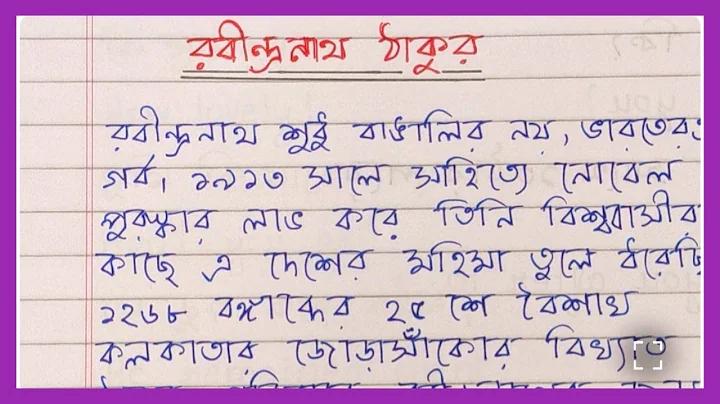 রবীন্দ্রনাথ ঠাকুর
রবীন্দ্রনাথ শুধু বাঙালির নয়, ভারতেরও
গর্ব। ১৯১৩ সালে সাহিত্যে নোবেল
পুরস্কার লাভ করে তিনি বিশ্ববাসীর
কাছে এ দেশের মহিমা তুলে ধরেছি
১২৬৮ বঙ্গাব্দের ২৫ শে বৈশাখ
কলকাতার জোড়াসাঁকোর বিখ্যাত